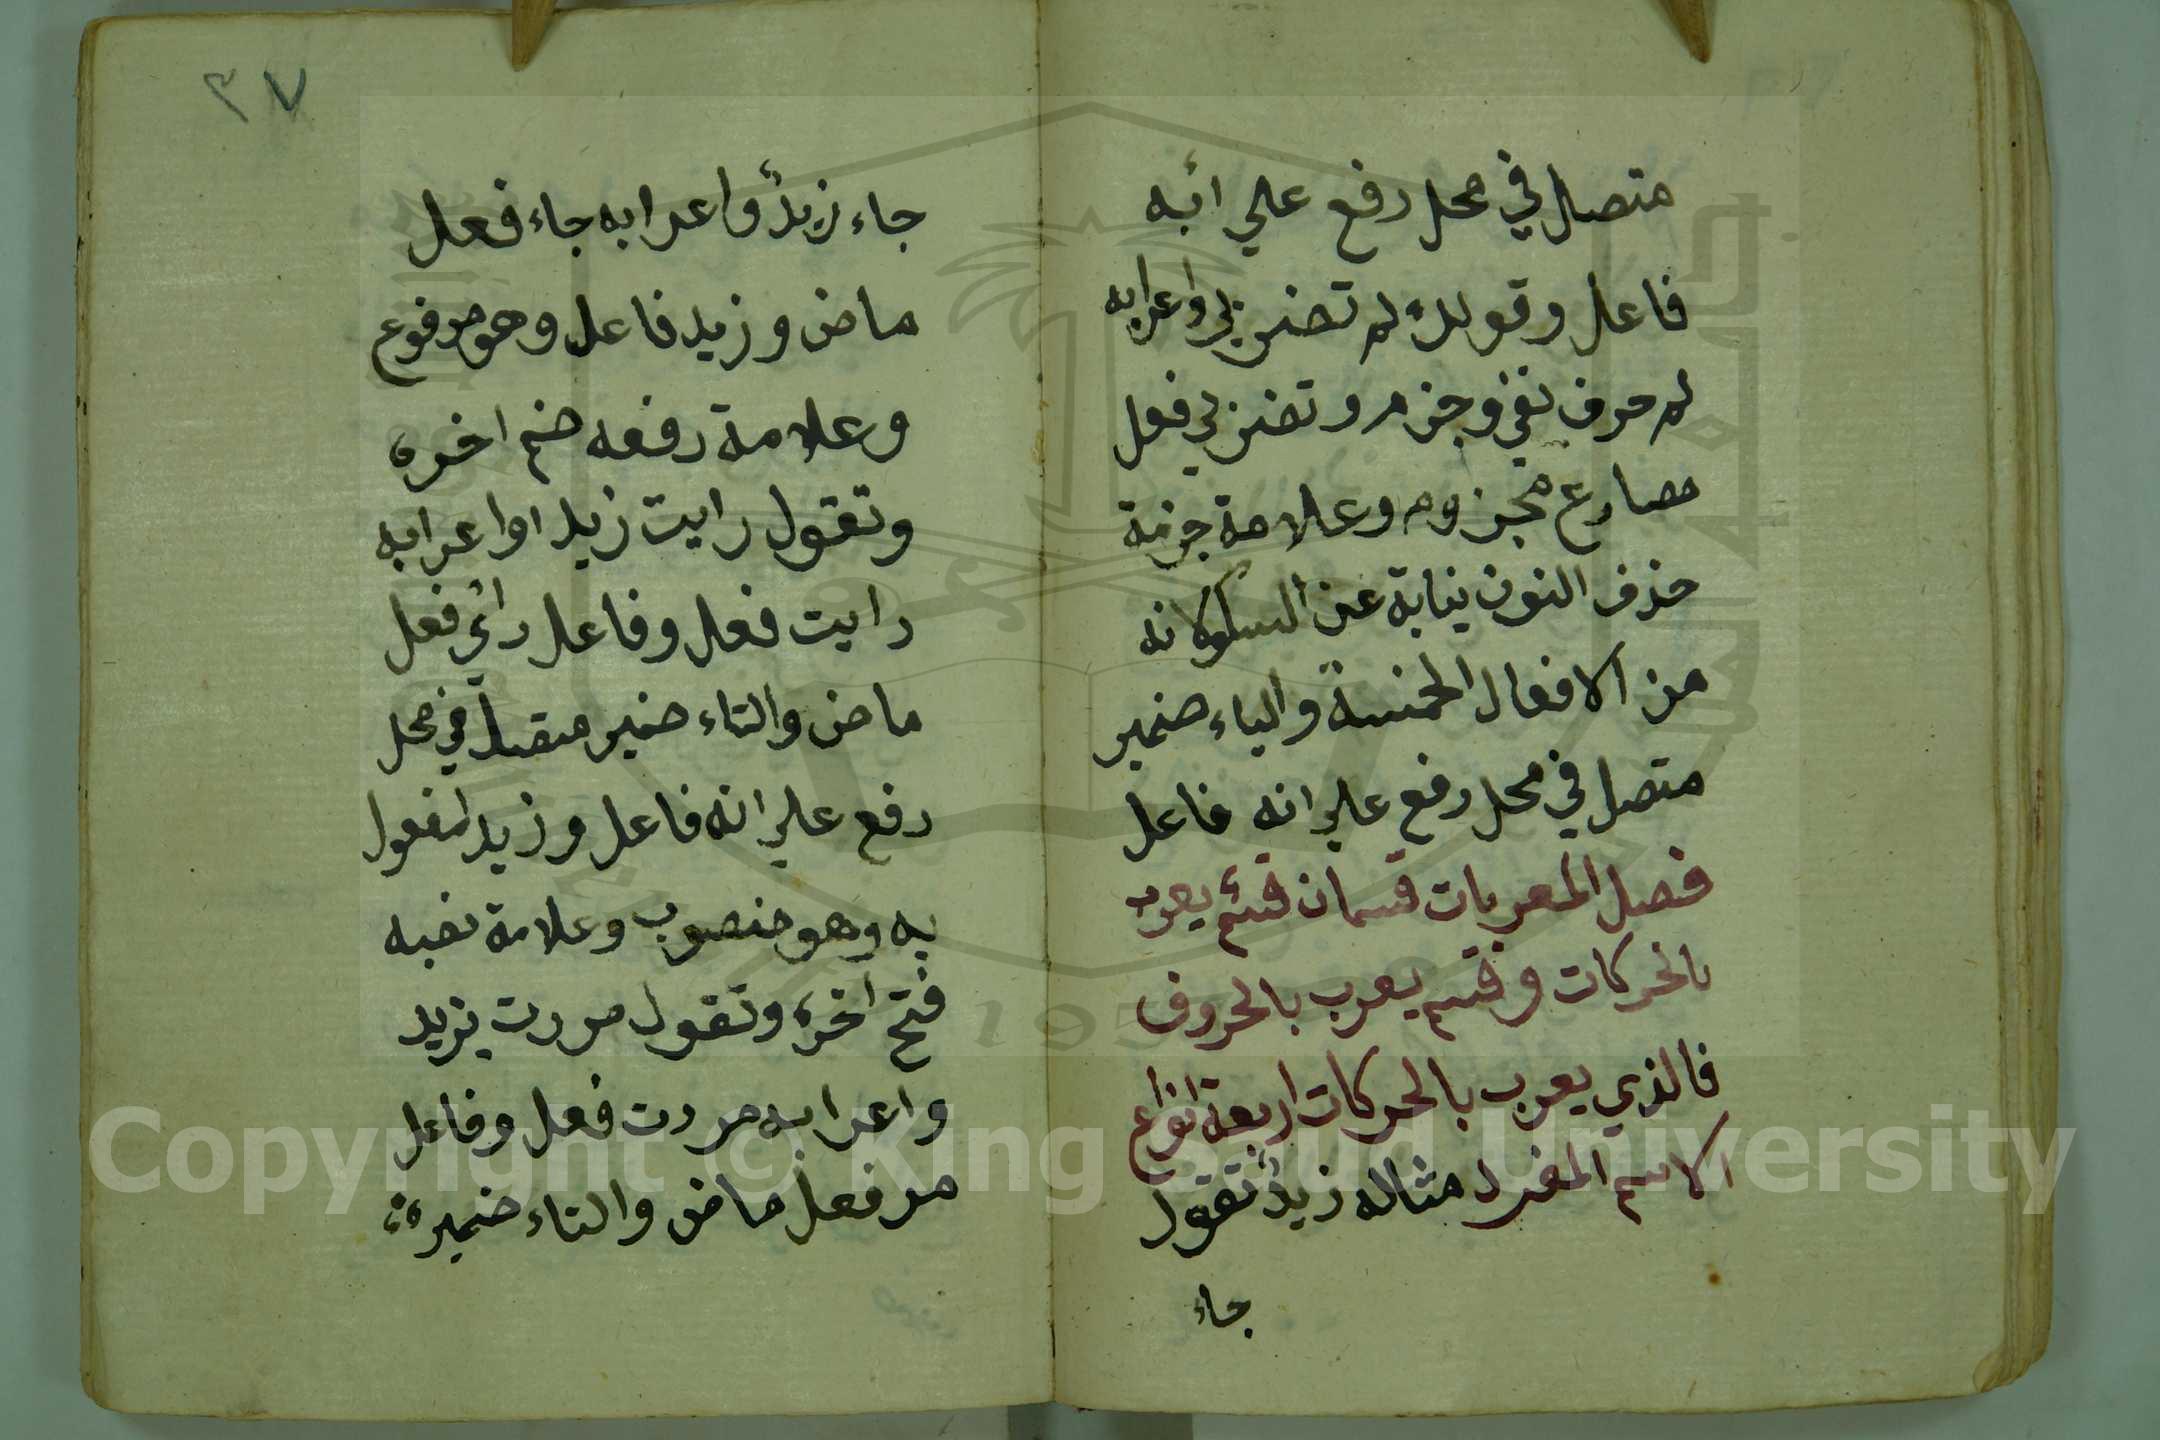 متصل في محل رفع علي انه
فاعل وقولك لم تضربي واعرابه
لم حرف نفي وجزم وتضربي فعل
مضارع مجزوم وعلامة جزمه
حذف النون نيابة عن السكون لانه
من الافعال الخمسة والياء ضمير
متصل في محل رفع علي انه فاعل
فصل المعربات قسمان قسم يعرب
بالحركات وقسم يعرب بالحروف
فالذي يعرب بالحركات اربعة انواع
الاسم المفرد مثاله زيدٌ تقول
جاء
٣٧
جاء زيدٌ واعرابه جاء فعل
ماض وزيد فاعل وهو مرفوع
وعلامة رفعه ضم اخره
وتقول رايت زيدا واعرابه
رايت فعل وفاعل رائ فعل
ماض والتاء ضمير متصل في محل
رفع علي انه فاعل وزيدا مفعول
به وهو منصوب وعلامة نصبه
فتح اخره وتقول مررت بزيد
واعرابه مررت فعل وفاعل
مر فعل ماض والتاء ضمير
Copyright © King Saud University
195